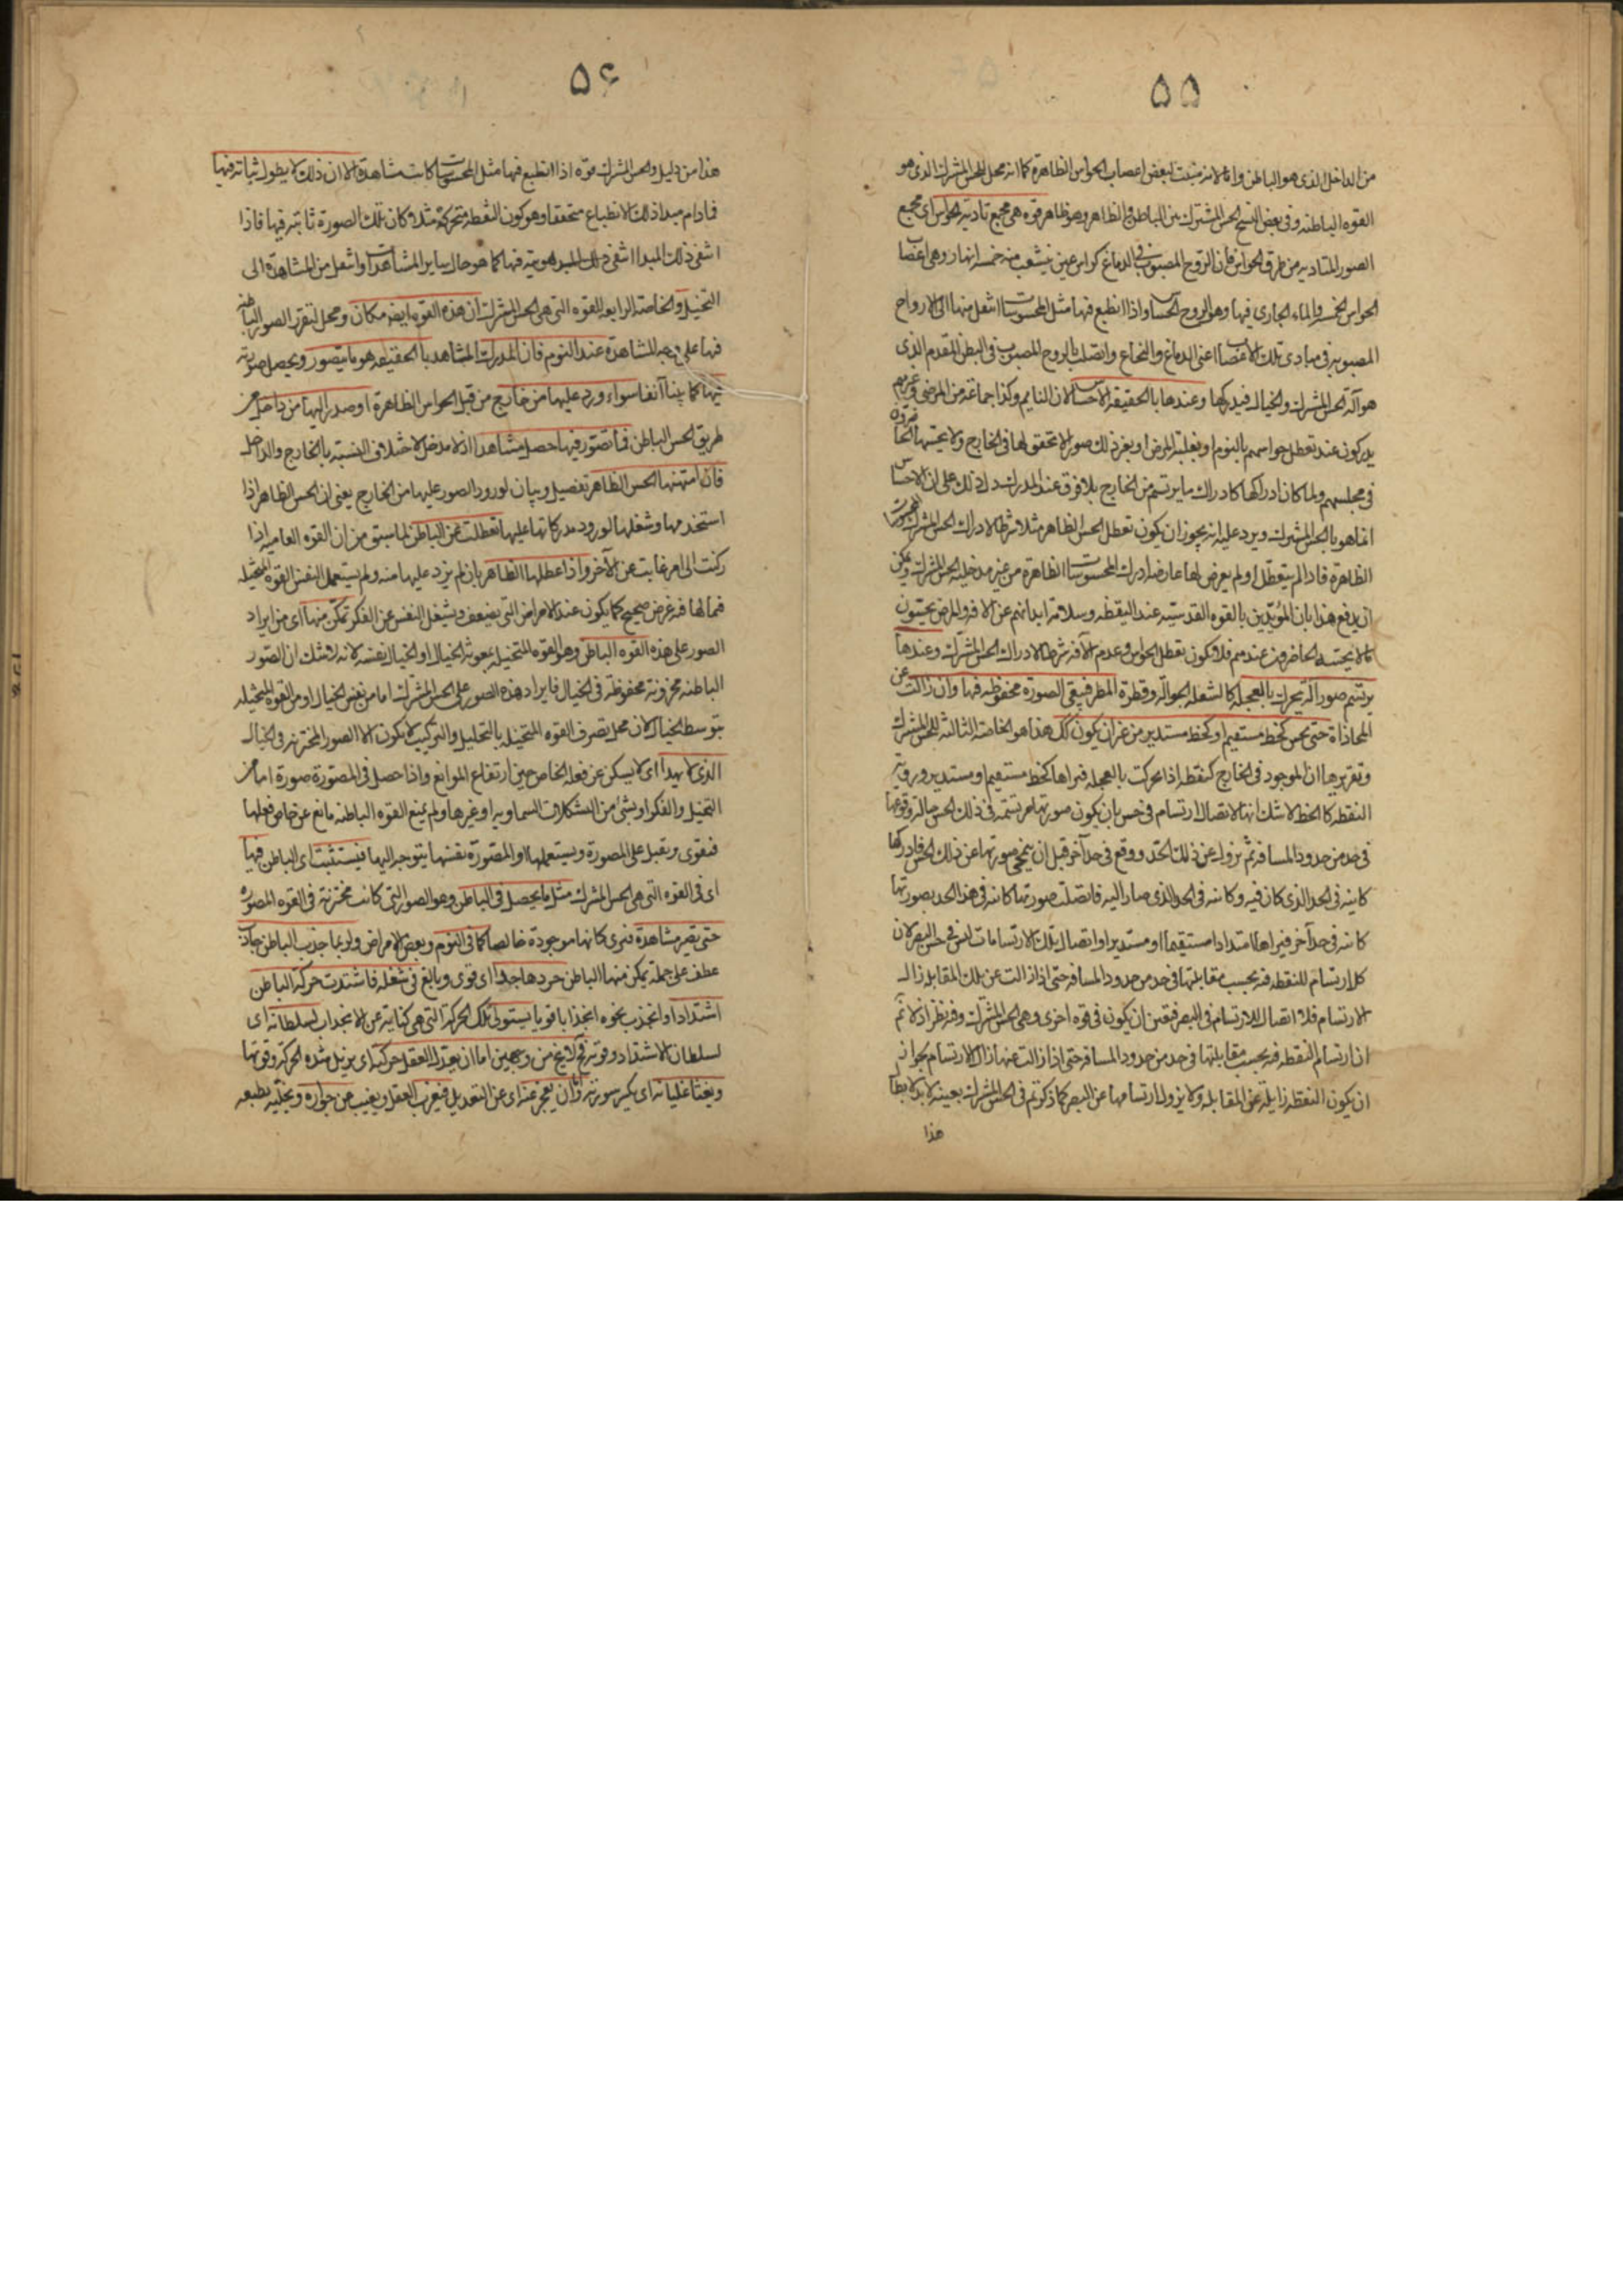 ۵۵
من الداخل الذى هو الباطن وانما لانه منبت لبعض اعصاب الحواس الظاهرة كما انه محل للحس المشترك الذى هو
القوه الباطنه وفى بعض النسخ الحس المشترك بين الباطن والظاهر وهو ظاهر قوه هى مجمع تاديه الحواس اى مجمع
الصور المتاديه من طرق الحواس فان الروح المصبوب فى الدماغ كراس عين ينشعب منه خمسه انهار وهى اعصاب
الحواس الخمس والماء الجارى فيها وهو الروح الحساس واذا انطبع فيها مثل المحسوسات انتقل منها الى الارواح
المصبوبه فى مبادى تلك الاعصاب اعنى الدماغ والنخاع واتصلت بالروح المصبوب فى البطن المقدم الذى
هو آلة الحس المشترك والخيال فيدركها وعندها بالحقيقه الاحساس لان النايم وكذا جماعة من المرضى وغيرهم
يدركون عند تعطل حواسهم بالنوم او بغلبة المرض او بغير ذلك صورا لا تحقق لها فى الخارج ولا يحسها الحاضرون
فى مجلسهم ولما كان ادراكها كادراك ما يرتسم من الخارج بلا فرق عند المدرك دل ذلك على ان الاحساس
انما هو بالحس المشترك ويرد عليه انه يجوز ان يكون تعطل الحس الظاهر مثلا شرطا لادراك الحس المشترك المحسوسات
الظاهرة فاذا لم يتعطل او لم يعرض لها عارض ادرك المحسوسات الظاهرة من غير مدخلية الحس المشترك ويمكن
ان يدفع هذا بان المؤيدين بالقوه القدسيه عند اليقظه وسلامة ابدانهم عن الافه والمرض يحسون
ما لا يحسه الحاضرون عندهم فلا يكون تعطل الحواس وعدم الآفه شرطا لادراك الحس المشترك وعندها
يرتسم صور آلة يتحرك بالعجله كالشعله الجواله وقطرة المطر فيبقى الصورة محفوظه فيها وان زالت عن
المحاذاة حتى يحس كخط مستقيم او كخط مستدير من غير ان يكون كك هذا هو الخاصة الثالثه للحس المشترك
وتقريرها ان الموجود فى الخارج كنقطه اذا تحركت بالعجله فيراها كخط مستقيم او مستدير ورؤية
النقطه كالخط لا شك انها لاتصال ارتسام فى حس بان يكون صورتها مرتسمه فى ذلك الحس حالة وقوعها
فى حد من حدود المسافه ثم يزول عن ذلك الحد ووقع فى حد آخر قبل ان ينمحى صورتها عن ذلك الحس فادركها
كاينه فى الحد الذى كان فيه وكاينه فى الحد الذى صار اليه فاتصلت صورتها كاينه فى هذا الحد بصورتها
كاينه فى حد آخر فيراها امتدادا مستقيما او مستديرا واتصال تلك الارتسامات ليس فى حس البصر لان
كل ارتسام للنقطه فيه بحسب مقابلتها فى حد من حدود المسافه حتى اذا زالت عن تلك المقابله زال
الارتسام فلا اتصال للارتسام فى البصر فيتعين ان يكون فى قوه اخرى وهى الحس المشترك وفيه نظر اذ لا نم
ان ارتسام النقطه فيه بحسب مقابلتها فى حد من حدود المسافه حتى اذا زالت عنها زال الارتسام بجواز
ان يكون النقطه زايلة عن المقابله ولا يزول ارتسامها عن البصر كما ذكرتم فى الحس المشترك بعينه لا بد لابطال
هذا
۵۶
هذا من دليل والحس المشترك قوه اذا انطبع فيها مثل المحسوسات كانت مشاهدة الا ان ذلك لا يطول ثباته فيها
فمادام مبدا ذلك الانطباع متحققا وهو كون النقطه متحركة مثلا كان تلك الصورة ثابته فيها فاذا
انتفى ذلك المبدا انتفى ذلك فيها كما هو حال ساير المشاهدات وانتقل من المشاهدة الى
التخيل والخاصة الرابعه للقوه التى هى الحس المشترك ان هذه القوه ايضا مكان ومحل لتقرر الصور الباطنه
فيها على وجه المشاهدة عند النوم فان المدرك المشاهد بالحقيقه هو ما يتصور ويحصل صورته
فيها كما بينا آنفا سواء ورد عليها من خارج من قبل الحواس الظاهرة او صدر اليها من داخل من
طريق الحس الباطن فما تصور فيها حصل مشاهدا اذ لا مدخل لاختلاف النسبة بالخارج والداخل
فان امتهنها الحس الظاهر تفصيل وبيان لورود الصور عليها من الخارج يعنى ان الحس الظاهر اذا
استخدمها وشغلها لورود مدركاتها عليها تعطلت عن الباطن لما سبق من ان القوه العاميه اذا
ركنت الى امر غابت عن الآخر واذا عطلها الظاهر بان لم يزد عليها منه ولم يستعمل النفس القوه المتخيله
فيما لها فيه غرض صحيح كما يكون عند الامراض التى يضعف ويشغل النفس عن الفكر تمكن منها اى من ايراد
الصور على هذه القوه الباطن وهو القوه المتخيله بمعونة الخيال او الخيال بنفسه لانه لا شك ان الصور
الباطنه مخزونة محفوظة فى الخيال فايراد هذه الصور على الحس المشترك اما من نفس الخيال او من القوه المتخيله
بتوسط الخيال لان محل تصرف القوه المتخيله بالتحليل والتركيب لا يكون الا الصور المخزونه فى الخيال
الذى لا يهدا اى لا يسكن عن فعله الخاص حين ارتفاع الموانع واذا حصل فى المصورة صورة اما من
التخيل والفكر او بشئ من التشكلات السماويه او غيرها ولم يمنع القوه الباطنه مانع عن خاص فعلها
فتقوى ويقبل على المصورة ويستعملها او المصورة نفسها يتوجه اليها فيستثبت اى الباطن فيها
اى فى القوه التى هى الحس المشترك مثل ما يحصل فى الباطن وهو الصور التى كانت مخزونة فى القوه المصورة
حتى يصير مشاهدة فيرى كانها موجودة خالصا كما فى النوم وبعض الامراض ولربما جذب الباطن جاذب
عطف على جملة يمكن منها الباطن جدا اى قوى وبالغ فى شغله فاشتدت حركة الباطن
اشتدادا وانجذب نحوه انجذابا قويا يستولى تلك الحركة التى هى كناية عن الانجذاب لسلطانه اى
لسلطان الاشتداد وقوته فح لا يخ من وجهين اما ان يعدل العقل حركته اى يزيل شدة الحركه وقوتها
ويفثأ غليانه اى يكسر سورته واما ان يعجز عنه اى عن التعديل فيغرب العقل ويغيب عن جواره ويخليه بطبعه